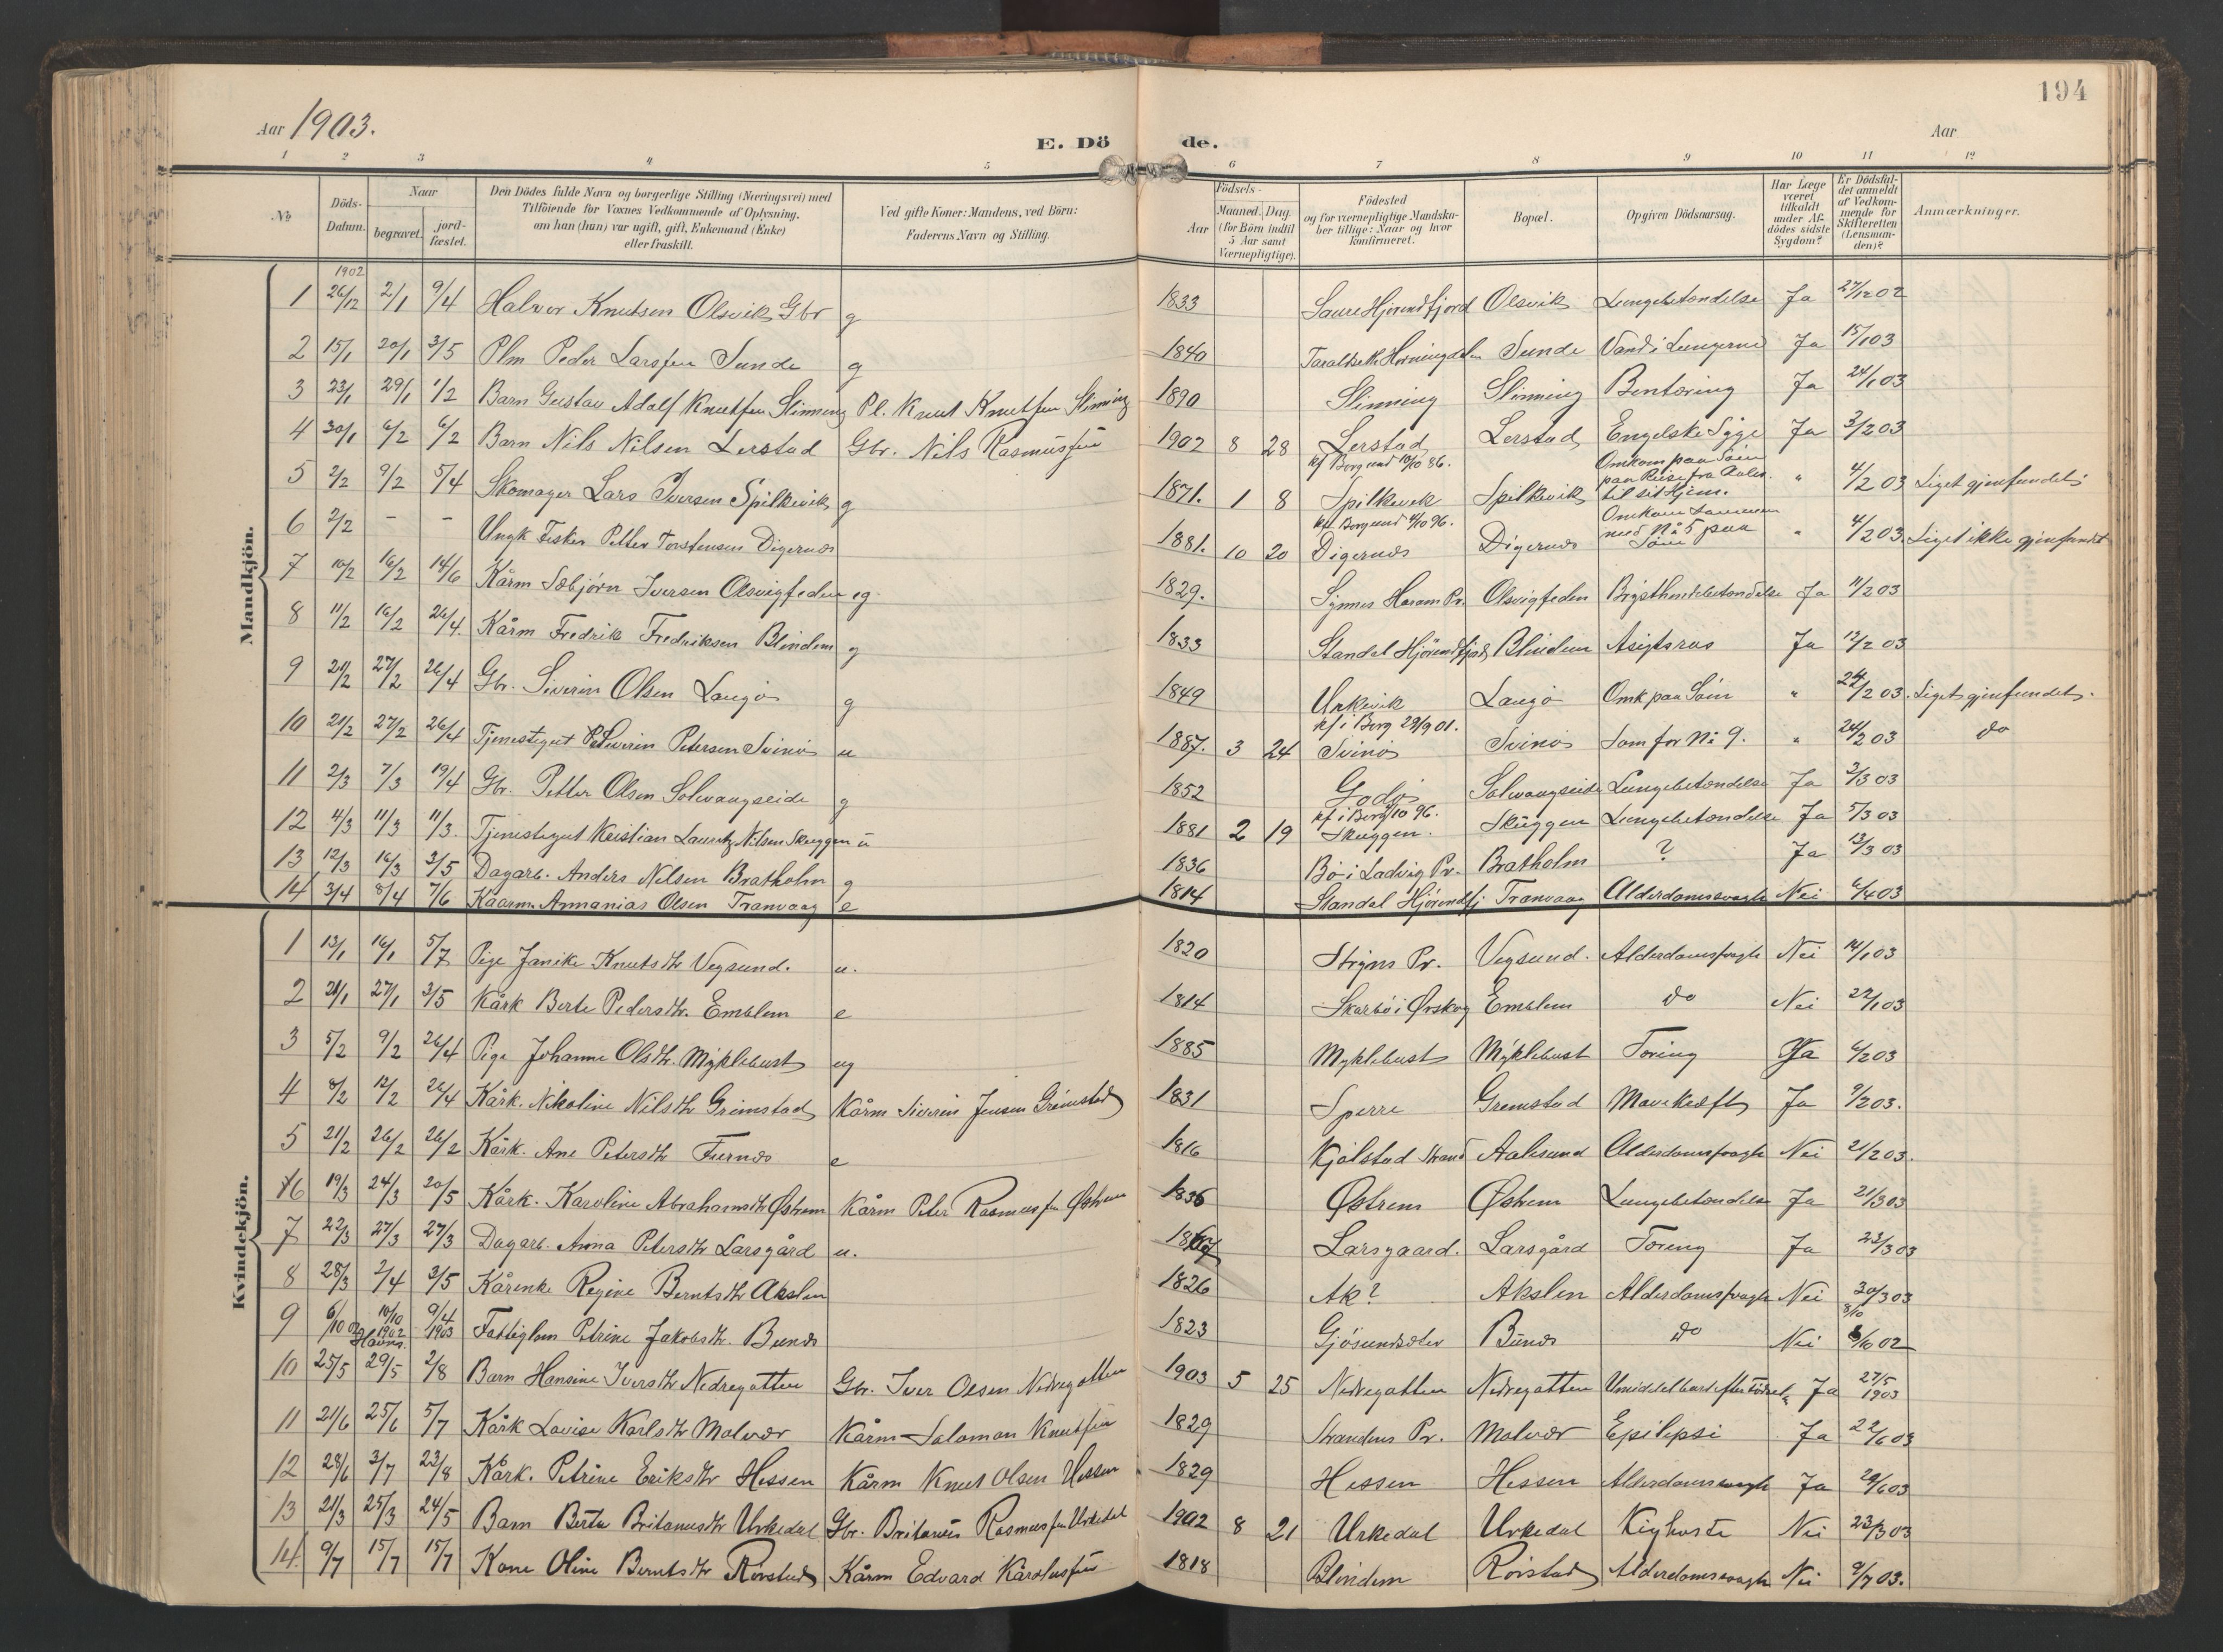 194
Aar 1903.
E. Dö
de.
Aar
1 2 3 4 5 6 7 8 9 10 11 12
No
Döds-Datum.
Naar
begravet.
jord-fæstet.
Den Dödes fulde Navn og borgerlige Stilling (Næringsvei) med
Tilföiende for Voxnes Vedkommende af Oplysning,
om han (hun) var ugift, gift, Enkemand (Enke)
eller fraskilt.
Ved gifte Koner: Mandens, ved Börn:
Faderens Navn og Stilling.
Födsels-
Aar
Maaned. Dag.
(for Börn indtil
5 Aar samt
Værnepligtige).
Födested
og for værnepligtige Mandska-
ber tillige: Naar og hvor
konfirmeret.
Bopæl.
Opgiven Dödsaarsag.
Har Læge
været
tilkaldt
under Af-
dödes sidste
Sygdom?
Er Dödsfal-
det anmeldt
af Vedkom-
mende for
Skifteretten
(Lensman-
den)?
Anmærkninger.
Mandkjön.
1902
1 26/12 2/1 9/4 Halvor Knutsen Olsvik Gbr g 1833 Saure Hjørendfjord Olsvik Lungebetændelse Ja 27/12 02
2 15/1 20/1 3/5 Plm Peder Larssen Sunde g 1840 Sunde Vand i Lungerne Ja 15/1 03
3 23/1 29/1 1/2 Barn Gustav Adolf Knutsen Slinning Pl. Knut Knutsen Slinning 1890 Slinning Slinning Bentæring Ja 24/1 03
4 30/1 6/2 6/2 Barn Nils Nilsen Lerstad Gbr. Nils Rasmussen 1902 8 28 Lerstad Lerstad Engelske Syge Ja 3/2 03
kf Borgund 10/10 86.
5 2/2 9/2 5/4 Skomager Lars Iversen Spilkevik g 1871. 1 8 Spilkevik Spilkevik Omkom paa Søen paa Reise fra Aales. til sit Hjem. " 4/2 03 Liget gjenfundet
kf Borgund 4/10 96.
6 2/2 - - Ungk Fisker Petter Torstensen Digernæs 1881. 10 20 Digernæs Digernæs Omkom sammen med No 5 paa Søen " 4/2 03. Liget ikke gjenfundet
7 10/2 16/2 14/6 Kårm Sæbjørn Iversen Olsvigfeden eg 1829. Synnes Haram Pr. Olsvigfeden Brysthindebetændelse Ja 11/2 03
8 11/2 16/2 26/4. Kårm Fredrik Fredriksen Blindem g 1833 Standal Hjørendfjord Blindem Ja 12/2 03
9 21/2 27/2 26/4 Gbr. Siverin Olsen Langø g 1849 Urkevik Langø Omk paa Søen " 24/2 03. Liget gjenfundet.
kf i Borg 29/9 01.
10 21/2 27/2 26/4 Tjenestegut Severin Petersen Svinø u 1887. 3 24 Svinø Svinø Som for No 9. " 24/2 03 do
11 2/3 7/3 19/4 Gbr. Petter Olsen Solevaagseide g 1852 Godø Solevaagseide Lungebetændelse Ja 3/3 03
kf i Borg 4/10 96.
12 4/3 11/3 11/3. Tjenestegut Kristian Lauritz Nilsen Skuggen u 1881 2 19 Skuggen. Skuggen Lungebetændelse Ja 5/3 03
13 12/3 16/3 3/5 Dagarb. Anders Nilsen Bratholm g 1836 Bø i Ladvig Pr. Bratholm ? Ja 13/3 03
14 3/4 8/4 7/6 Kaarm. Annanias Olsen Tranvaag e 1814 Standal Hjørendfj Tranvaag Alderdomssvagh Nei 6/4 03
Kvindekjön.
1 13/1 16/1 5/7 Pige Janike Knutsdtr Vegsund. u. 1820 Stryns Pr. Vegsund. Alderdomssvagh Nei 14/1 03
2 21/1 27/1 3/5 Kårk Berte Pedersdtr. Emblem e 1814 Skarbø i Ørskog Emblem do Nei 22/1 03
3 5/2 9/2 26/4 Pige Johanne Olsdtr. Myklebust ug 1885 Myklebust Myklebust Tæring Ja 6/2 03
4 8/2 12/2 26/4 Kårk. Nikoline Nilsdtr Grimstad Kårm Siverin Jensen Grimstad 1831 Sperre Gremstad Mavekræft Ja 9/2 03.
5 21/2 26/2 26/2 Kårk. Ane Petersdtr Furnæs e 1816 Kjølstad Strand Aalesund Alderdomssvagh Nei 21/2 03.
6 19/3 24/3 20/5 Kårk. Karoline Abrahamsdtr Østrem Kårm Peter Rasmussen Østrem 1836 Østrem Østrem Lungebetændelse Ja 21/3 03
7 22/3 27/3 27/3 Dagarb. Anna Petersdtr Larsgård u. 1867 Larsgaard. Larsgård Tæring Ja 23/3 03
8 28/3 2/4 3/5 Kårenke Regine Berntsdtr Akslen 1826 Ak? Akslen Alderdomssvagh Nei 30/3 03
9 6/10 02 10/10 1902 9/4 1903 Fattiglem Petrine Jakobsdtr. Bunds 1823 Bunds do Nei 8/10 02
10 25/5 29/5 2/8 Barn Hansine Iversdtr Nedregotten Gbr. Iver Olsen Nedregotten 1903 5 25 Nedregotten Nedregotten Umiddelbart efter Fødsel Ja 27/5 1903
11 21/6 25/6 5/7 Kårk Lovise Karlsdtr Molvær Kårm Salomon Knutsen 1829 Strandens Pr. Molvær Epilepsi Ja 22/6 03
12 28/6 3/7 23/8 Kårk. Petrine Eriksdtr Hessen Kårm Knut Olsen Hessen 1829 Hessen Hessen Alderdomssvagh Ja 29/6 03
13 21/3 25/3 24/5 Barn Berta Britanusdtr Urkedal Gbr. Britanus Rasmussen Urkedal 1902 8 21 Urkedal Urkedal Kighoste Nei 23/3 03
14. 9/7 15/7 15/7 Kone Oline Berntsdtr Rørstad Kårm Edvard Karolussen 1818 Blindem Rørstad Alderdomssvagh Nei 9/7 03.